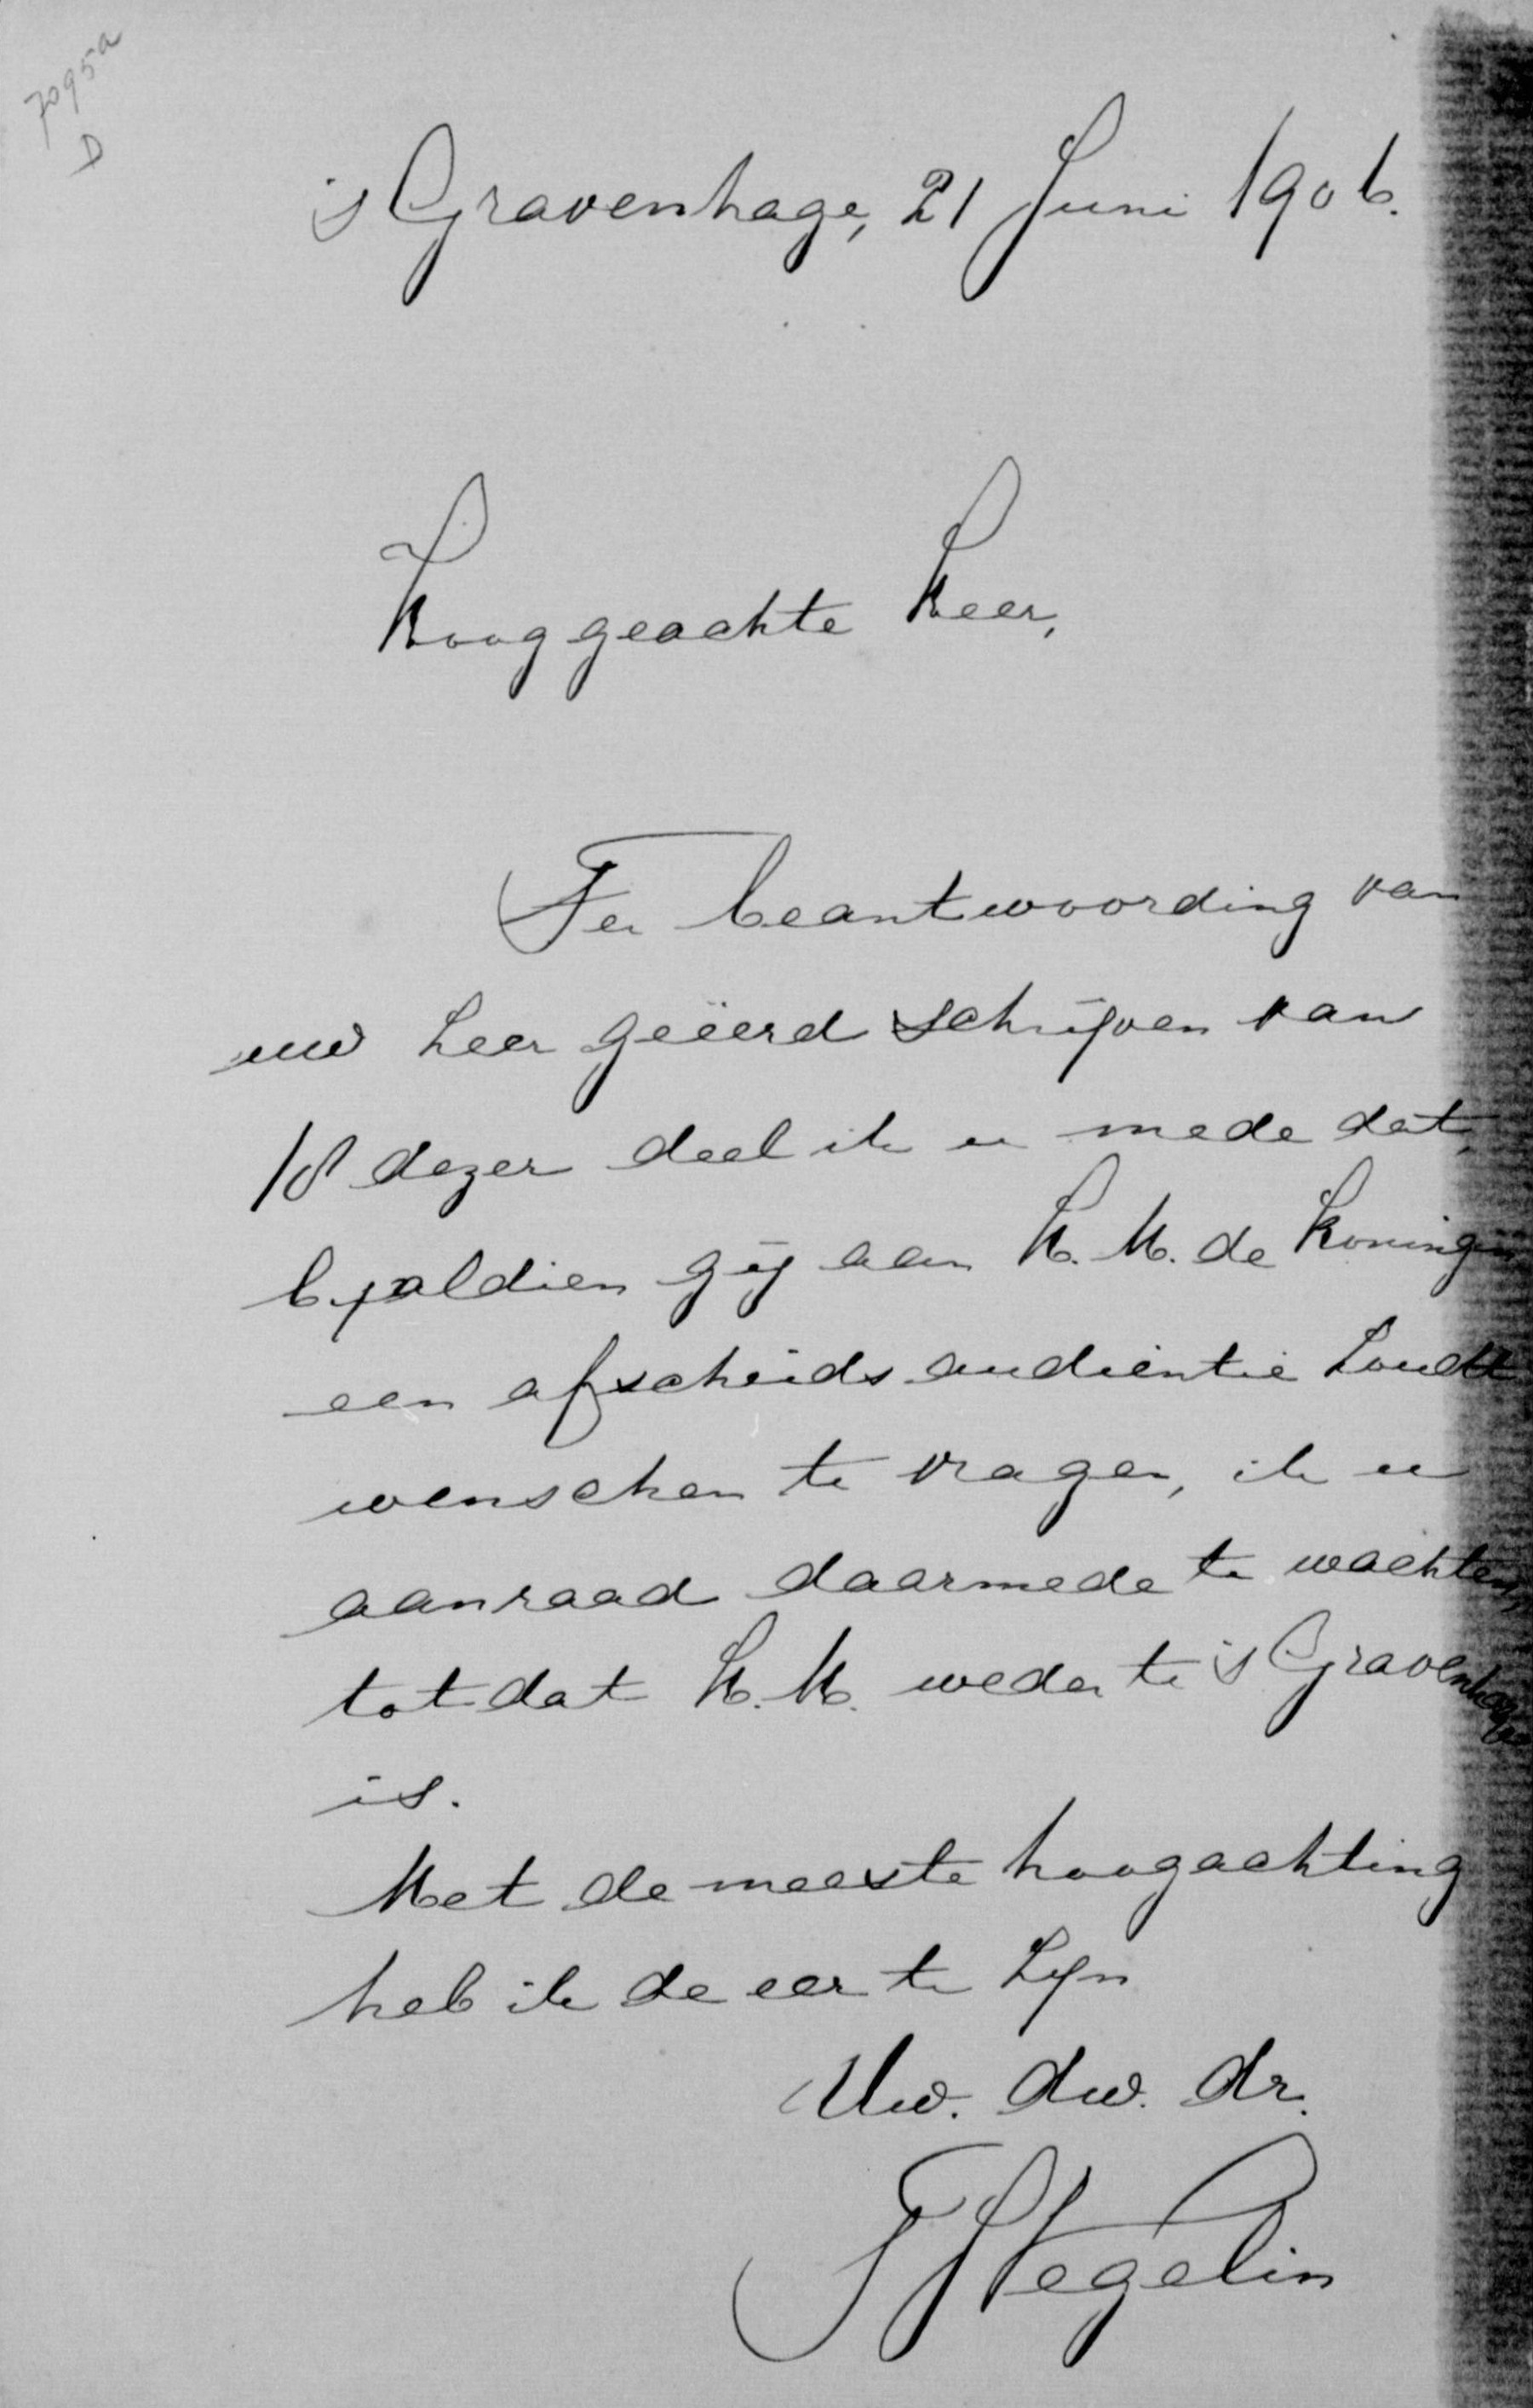 7095a
D
's Gravenhage, 21 Juni 1906.
Hooggeachte Heer,
Ter beantwoording van
uw zeer geëerd schrijven van
18 dezer deel ik u mede dat,
byaldien gij aan H. M. de Koningin
een afscheidsaudiëntie zoudt
wenschen te vragen, ik u
aanraad daarmede te wachten,
totdat H. M. weder te 's Gravenhage
is.
Met de meeste hoogachting
heb ik de eer te zyn
Uw. dw. dr.